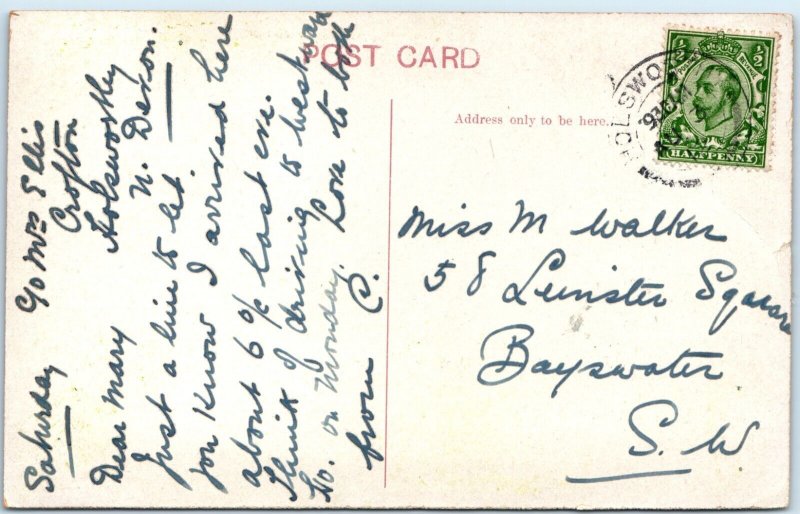 POST CARD
Address only to be here.
HALFPENNY
HOLSWO
Miss M Walker
58 Leinster Sqaure
Bayswater
S. W
c/o Mrs Ellis
Crofton
Holsworthy
N. Devon.
Saturday
Dear Mary
Just a line to let
you know I arrived here
about 6 o/c last eve.
Think of driving to
on Monday. Love to both
from C.